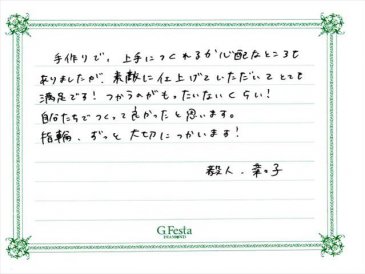 手作りで、上手につくれるか心配なところも
ありましたが、素敵に仕上げていただいてとても
満足です！つかうのがもったいないくらい！
自分たちでつくって良かったと思います。
指輪、ずっと大切につかいます！
毅人、菜々子
G.Festa
DIAMOND